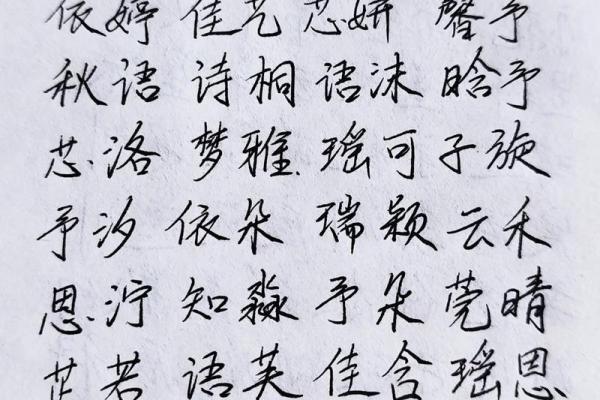 依婷 佳艺 芯妍 馨予
秋语 诗桐 语沫 晗予
芯洛 梦雅 瑶可 子旋
予汐 依朵 瑞颖 云禾
恩泞 知淼 予朵 莞晴
芷若 语芙 佳含 瑶恩